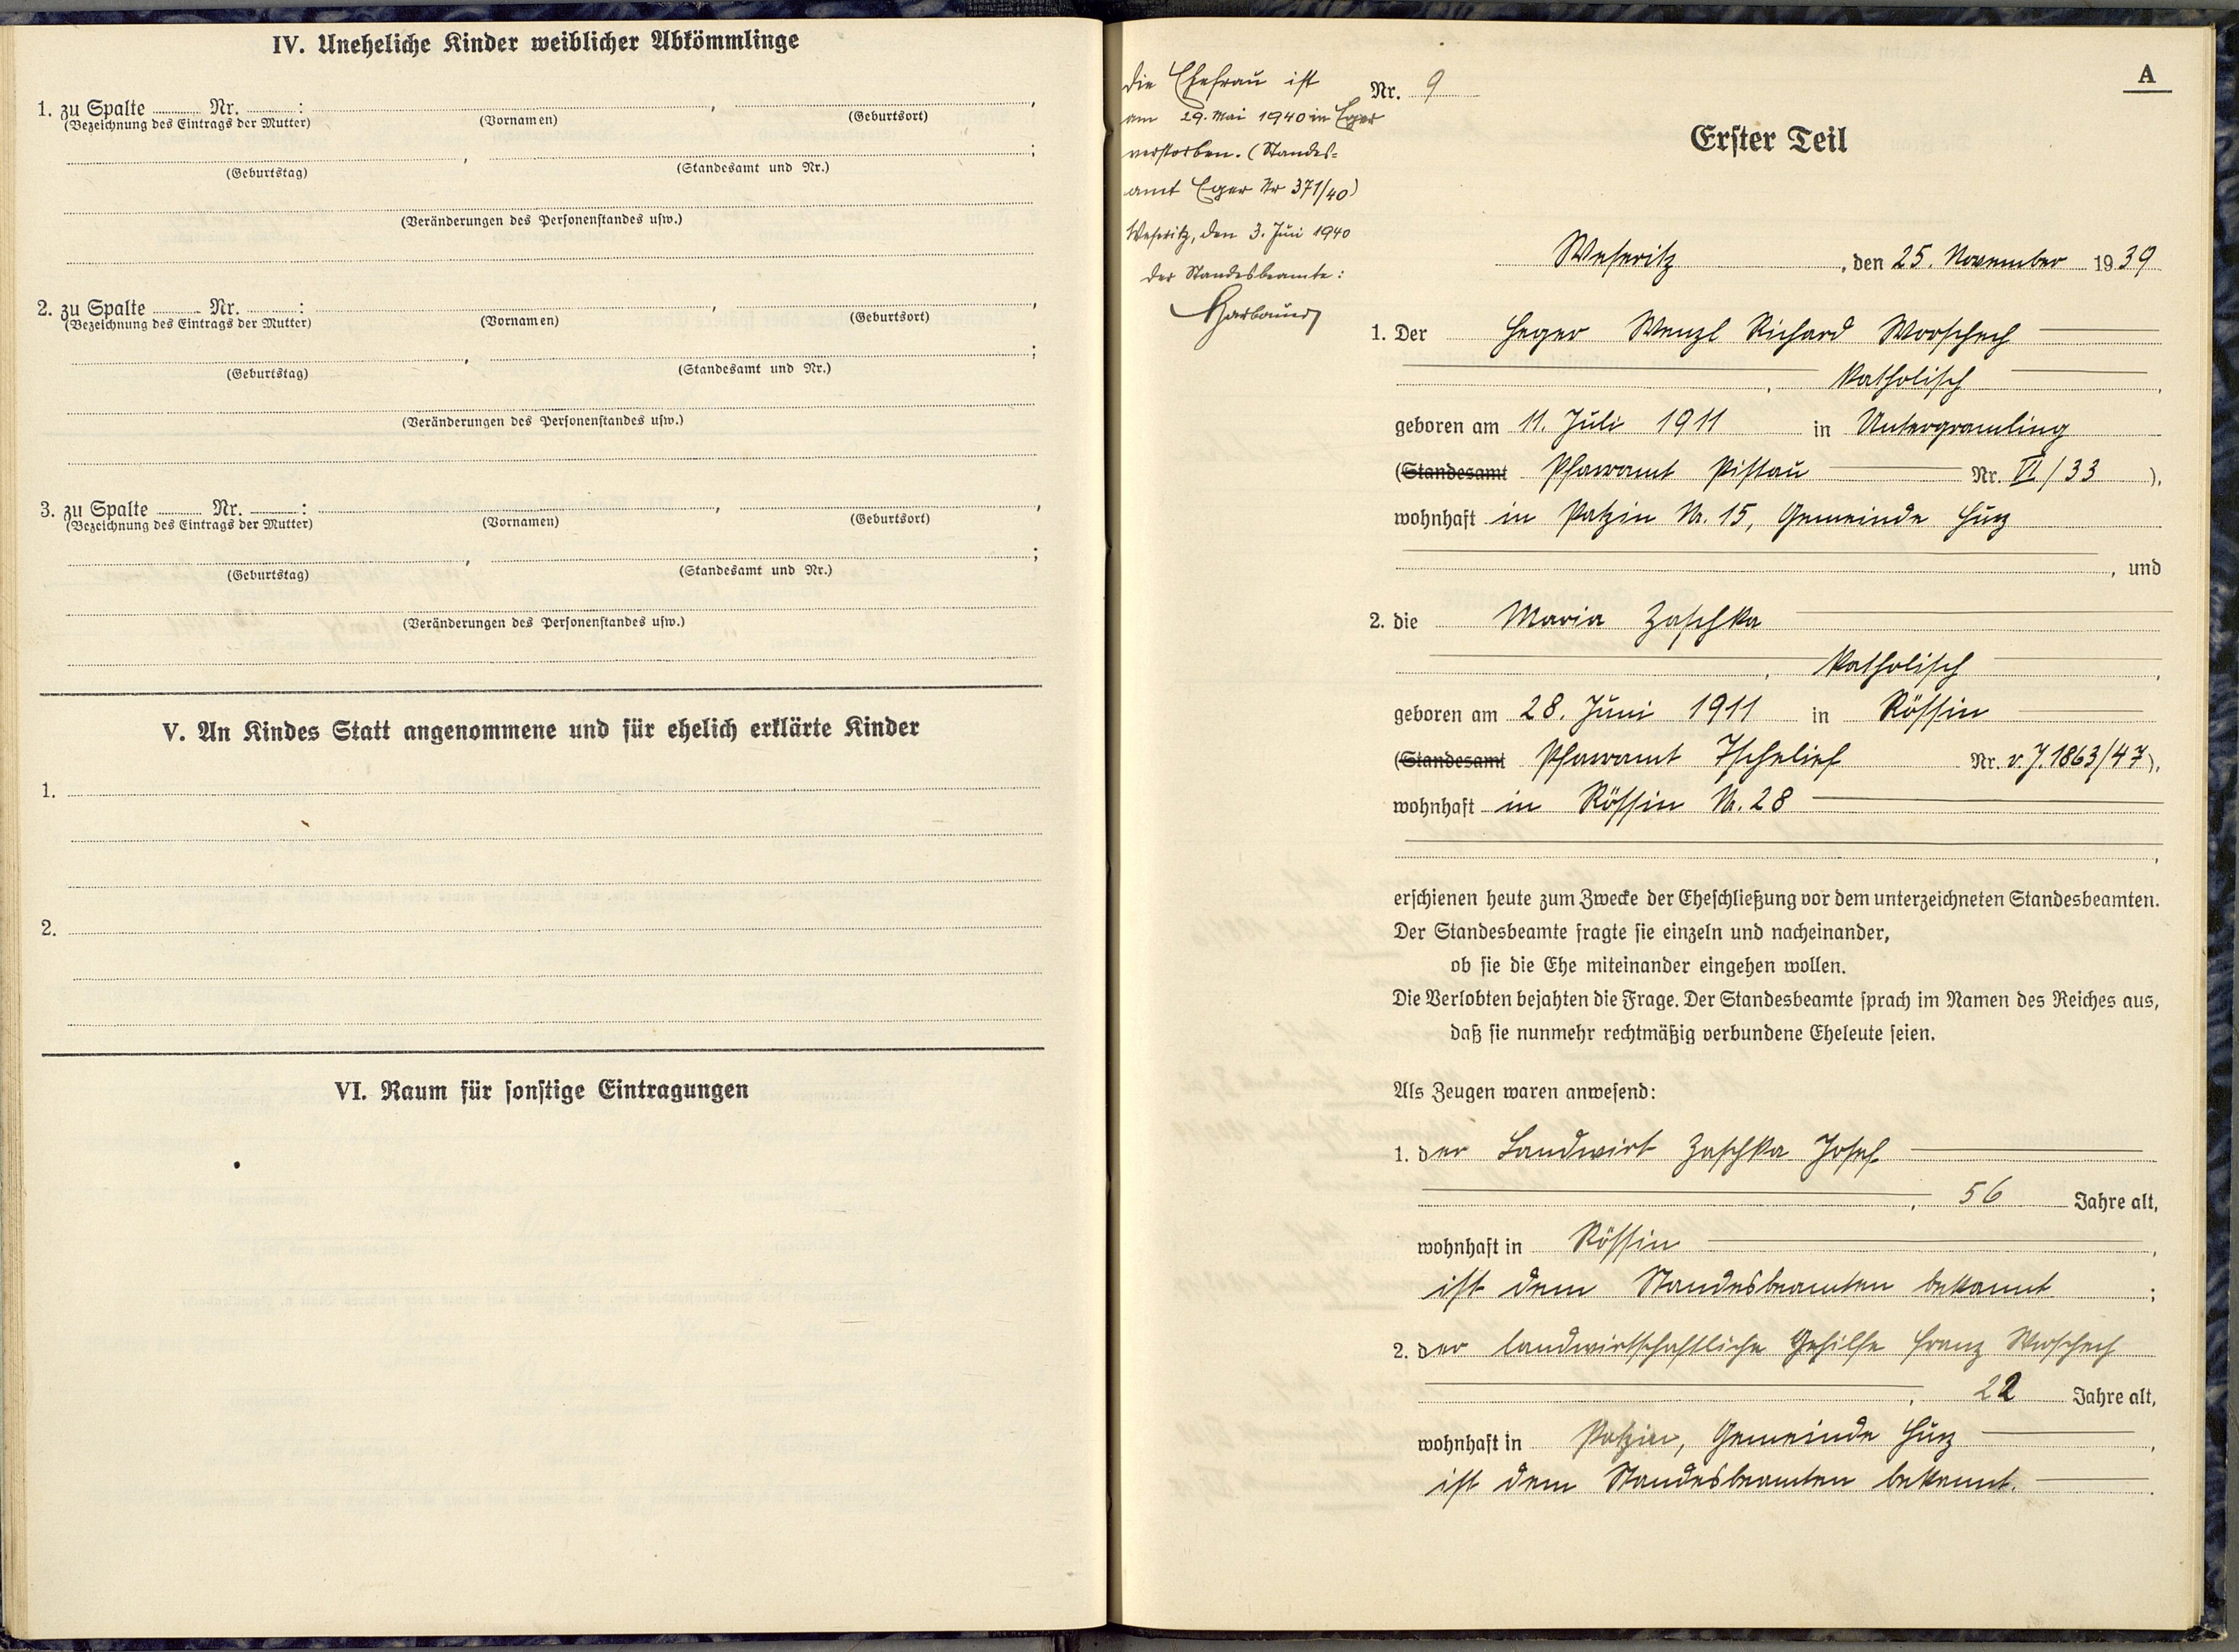 IV. Uneheliche Kinder weiblicher Abkömmlinge
1. zu Spalte ........ Nr. ........ :
(Bezeichnung des Eintrags der Mutter) (Vornamen) (Geburtsort)
(Geburtstag) (Standesamt und Nr.)
(Veränderungen des Personenstandes usw.)
2. zu Spalte ........ Nr. ........ :
(Bezeichnung des Eintrags der Mutter) (Vornamen) (Geburtsort)
(Geburtstag) (Standesamt und Nr.)
(Veränderungen des Personenstandes usw.)
3. zu Spalte ........ Nr. ........ :
(Bezeichnung des Eintrags der Mutter) (Vornamen) (Geburtsort)
(Geburtstag) (Standesamt und Nr.)
(Veränderungen des Personenstandes usw.)
V. An Kindes Statt angenommene und für ehelich erklärte Kinder
1.
2.
VI. Raum für sonstige Eintragungen
A
Nr. 9
Die Ehefrau ist
am 29. Mai 1940 in Eger
verstorben. (Standes=
amt Eger Nr 371/40)
Weseritz, den 3. Juni 1940
Der Standesbeamte:
Erster Teil
Weseritz, den 25. November 1939
1. Der Heger Wenzl Richard Worschech
, katholisch,
geboren am 11. Juli 1911 in Untergramling
(Standesamt Pfarramt Pistau Nr. VI/33),
wohnhaft in Patzin Nr. 15, Gemeinde Hurz
, und
2. die Maria Zaschka
, katholisch,
geboren am 28. Juni 1911 in Rössin
(Standesamt Pfarramt Tschelief Nr. v. J. 1863/47),
wohnhaft in Rössin Nr. 28
,
erschienen heute zum Zwecke der Eheschließung vor dem unterzeichneten Standesbeamten.
Der Standesbeamte fragte sie einzeln und nacheinander,
ob sie die Ehe miteinander eingehen wollen.
Die Verlobten bejahten die Frage. Der Standesbeamte sprach im Namen des Reiches aus,
daß sie nunmehr rechtmäßig verbundene Eheleute seien.
Als Zeugen waren anwesend:
1. der Landwirt Zaschka Josef
, 56 Jahre alt,
wohnhaft in Rössin,
ist dem Standesbeamten bekannt;
2. der landwirtschaftliche Gehilfe Franz Worschech
, 22 Jahre alt,
wohnhaft in Patzin, Gemeinde Hurz,
ist dem Standesbeamten bekannt.